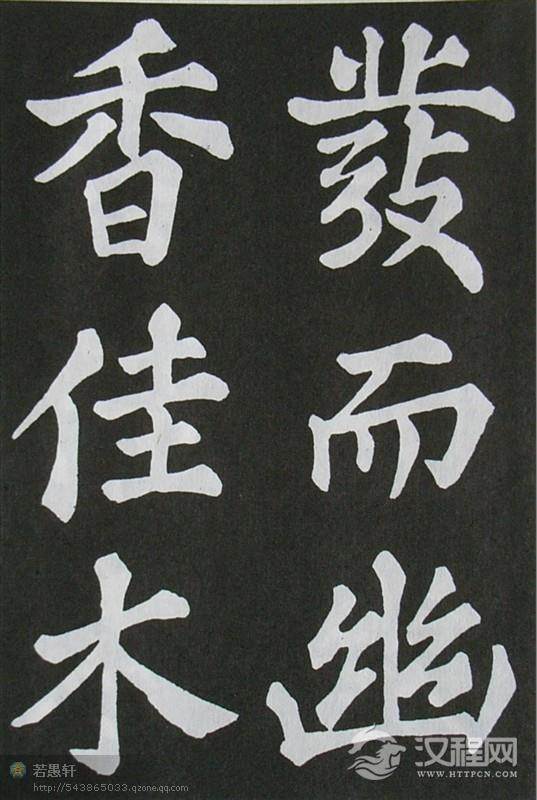 發而幽
香佳木
若愚轩
http://543865033.qzone.qq.com
汉程网
WWW.HTTPCN.COM